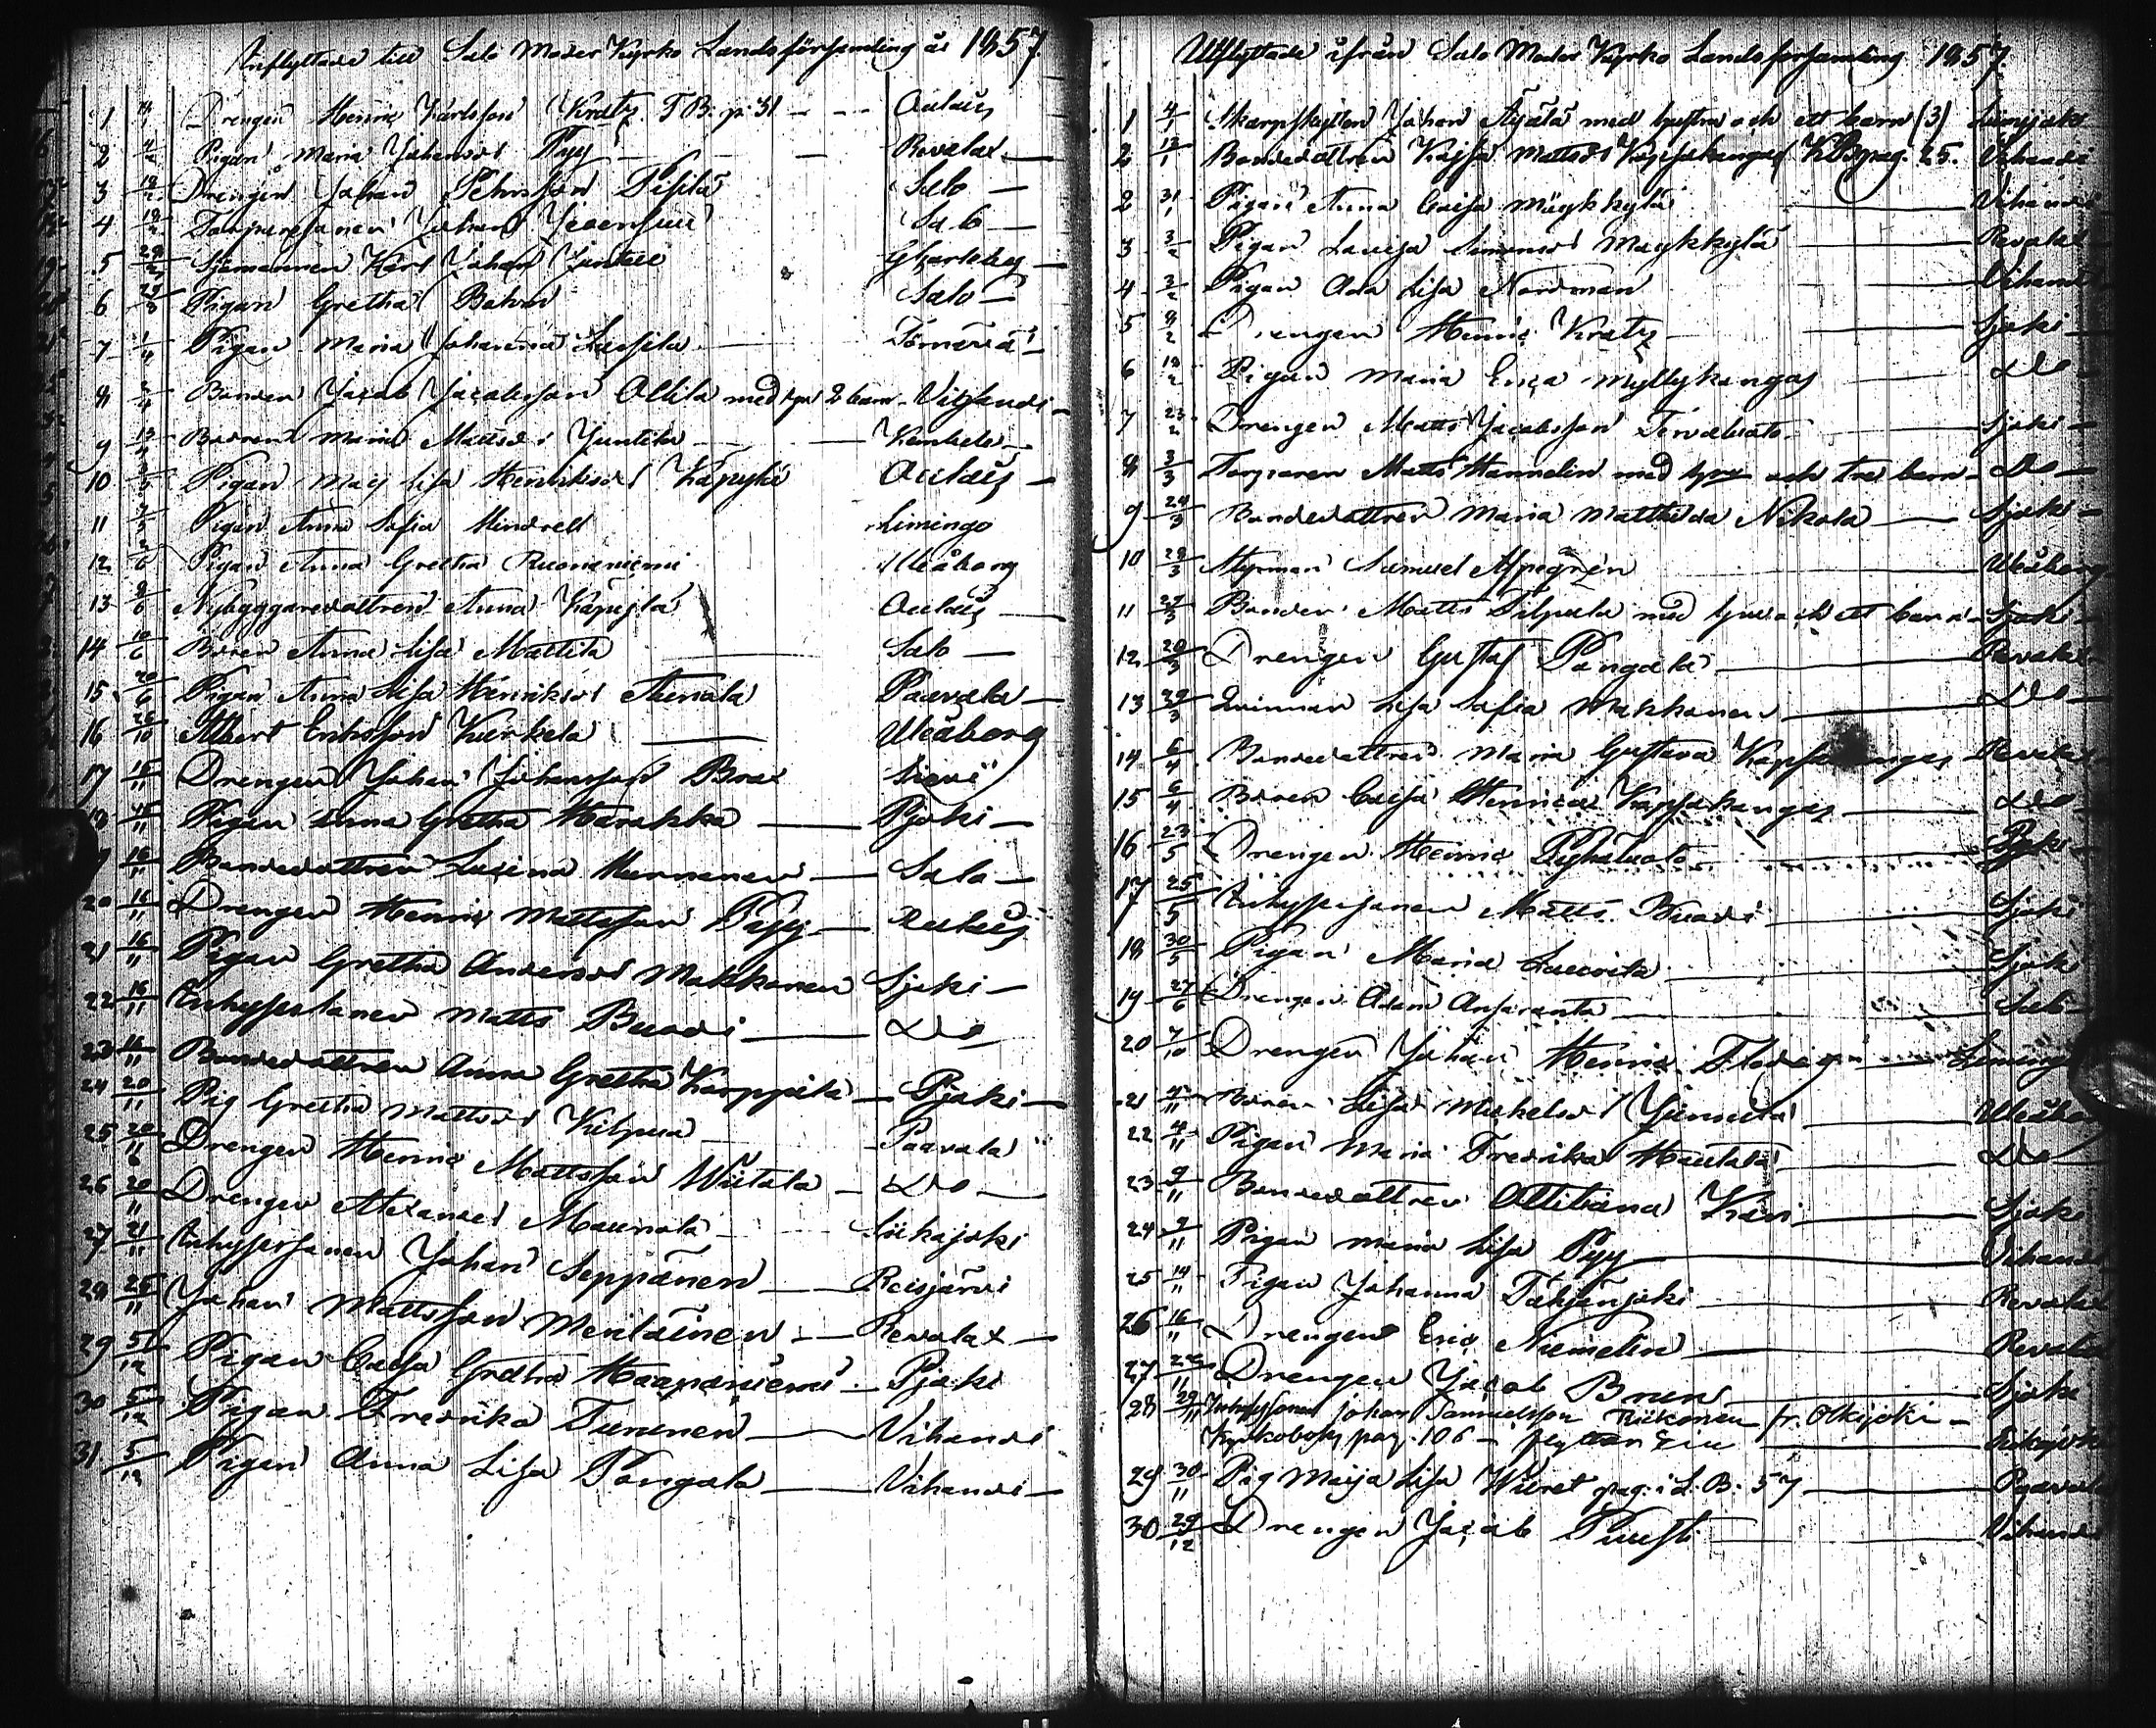 Inflyttade till Salo Moder Kyrko Landsförsamling år 1857
1 Drengen Henric Karlsson Kratz T.B. p. 31 Aulais
2 4/2 Pigan Maria Johansd Pyy Revolax
3 19/2 Drengen Johan Pehrsson Salo
4 19/2 Johan Salo
5 29/2 Sjömannen Karl Johan Juntti Gkarleby
6 29/3 Pigan Gretha Salo
7 1/4 Pigan Maria Johanna Lassila
8 2/4 Bonden Jacob Jacobsson Ollila med hu 2 barn Vihandi
9 13/4 Maria Mattsd Juntila Kembele
10 Pigan Maij Lisa Henriksd Käpylä Aulais
11 Pigan Anna Sofia Hindrell Limingo
12 Pigan Anna Gretha Ruonaniemi Uleåborg
13 9/6 Nybyggaredottren Anna Käpylä Aulais
14 10/6 Anna Lisa Mattila Salo
15 20/6 Pigan Anna Lisa Henriksd Paavola
16 26/10 Albert Eriksson Kurkela Uleåborg
17 15/11 Drengen Johan Johansson Brax Sievi
18 15/11 Pigan Anna Gretha Harakka Pjoki
16/11 Bondedottren Lusina Salo
20 16/11 Drengen Henric Mattsson Pyy
21 16/11 Pigan Gretha Andersd Makkonen Sjoki
22 16/11 Inhysesmanen Matts Buodi Do
23 16/11 Bondedottren Anna Gretha Karppila Pjoki
24 20/11 Pig Gretha Mattsd Kilpua Paavola
25 20/11 Drengen Henric Mattsson Wiitala Do
26 20/11 Drengen Alexander Maunola Siikajoki
27 21/11 Johan Seppänen Reisjärvi
28 25/11 Johan Mattsson Meriläinen Revolax
29 Pigan Caisa Gretha Haapaniemi Pjoki
30 5/12 Pigan Fredrika Turunen Vihandi
31 5/12 Pigan Anna Lisa Pangala Vihandi
Utflyttade ifrån Salo Moder Kyrko Landsforsamling 1857
1 4/1 Skarpskytten Johan Äyälä med hustru och ett barn (3)
2 12/1 Bondedottren Kajsa Mattsd Kapsakangas KB pag. 25. Vihandi
2 31/1 Pigan Anna Caisa Mäykkylä Vihandi
3 3/2 Pigan Lovisa Simonsd Maykkylä Revolax
4 3/2 Pigan Lisa Nordman Vihandi
5 9/2 Drengen Henric Kratz Sjoki
6 19/2 Pigan Maria Erica Myllykangas Do
7 23/2 Drengen Matts Jacobsson Tervaluoto Sjoki
8 3/3 Torparen Matts Hannelin med hu och tre barn Do
9 24/3 Bondedottren Maria Mathilda Nikola Sjoki
10 28/3 Styrman Samuel Alpegren Uleåborg
11 29/3 Bonden Matts Filpula med hu och ett barn Sjoki
12 29/3 Drengen Gustaf Pangala Revolax
13 29/3 Qvinnan Lisa Sofia Makkonen Do
14 6/4 Bondedottren Maria Gustava Kapsakangas Revolax
15 6/4 Caisa Henricsd Kapsakangas Do
16 23/5 Drengen Henric Pyhäluoto Pjoki
17 25/5 Inhysesmanen Matts Buodi Sjoki
18 30/5 Pigan Maria Sjoki
19 27/6 Drengen Adam Ansaranta Salo
20 7/10 Drengen Johan Henric Limingo
21 4/11 Lisa Michelsd Uleåborg
22 4/11 Pigan Maria Fredrika Hautala Do
23 9/11 Bondedottren Ottiliana Sjoki
24 9/11 Pigan Maria Lisa Pyy Vihandi
25 14/11 Pigan Johanna Tähjänjoki Revolax
26 16/11 Drengen Eric Niemelin Revolax
27 22/11 Drengen Jacob Brun Sjoki
28 29/11 Johan Samuelsson Riekonen fr. Olkijoki
Kyrkoboks pag. 106 Siikajoki
29 30/11 Pig Maija Lisa Wiiret pag. i L.B. 57 Paavola
30 29/12 Drengen Jacob Puusti Vihandi